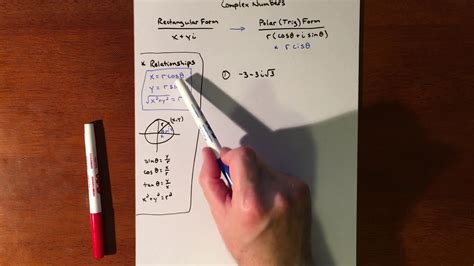 Complex Numbers
Rectangular Form → Polar (Trig) Form
x + yi
r(cosθ + i sinθ)
* r cisθ
* Relationships
x = r cosθ
y = r si
√x²+y² = r
① -3-3i√3
(x,y)
r
sinθ = y/r
cosθ = x/r
tanθ = y/x
x²+y² = r²